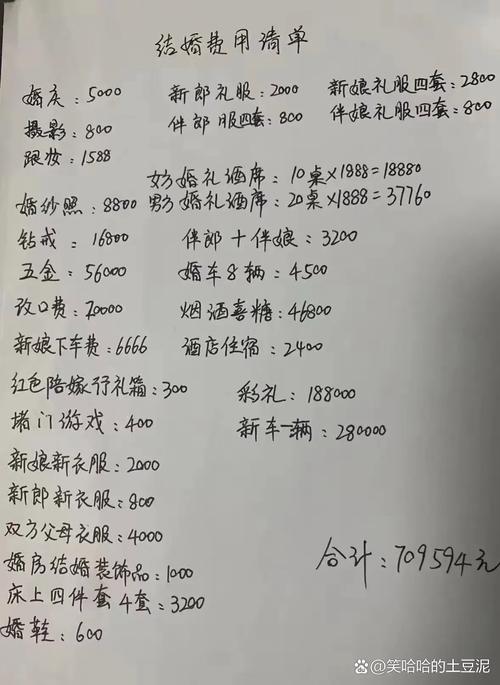 结婚费用清单
婚庆:5000 新郎礼服:2000 新娘礼服四套:2800
摄影:800 伴郎服四套:800 伴娘礼服四套:800
跟妆:1588
女方婚礼酒席:10桌×1988=18880
婚纱照:8800 男方婚礼酒席:20桌×1888=37760
钻戒:16800 伴郎十伴娘:3200
五金:56000 婚车8辆:4500
改口费:20000 烟酒喜糖:46800
新娘下车费:6666 酒店住宿:2400
红色陪嫁行礼箱:300 彩礼:188000
堵门游戏:400 新车一辆:280000
新娘新衣服:2000
新郎新衣服:800
双方父母衣服:4000
婚房结婚装饰品:1000 合计:709594元
床上四件套4套:3200
婚鞋:600
笑哈哈的土豆泥